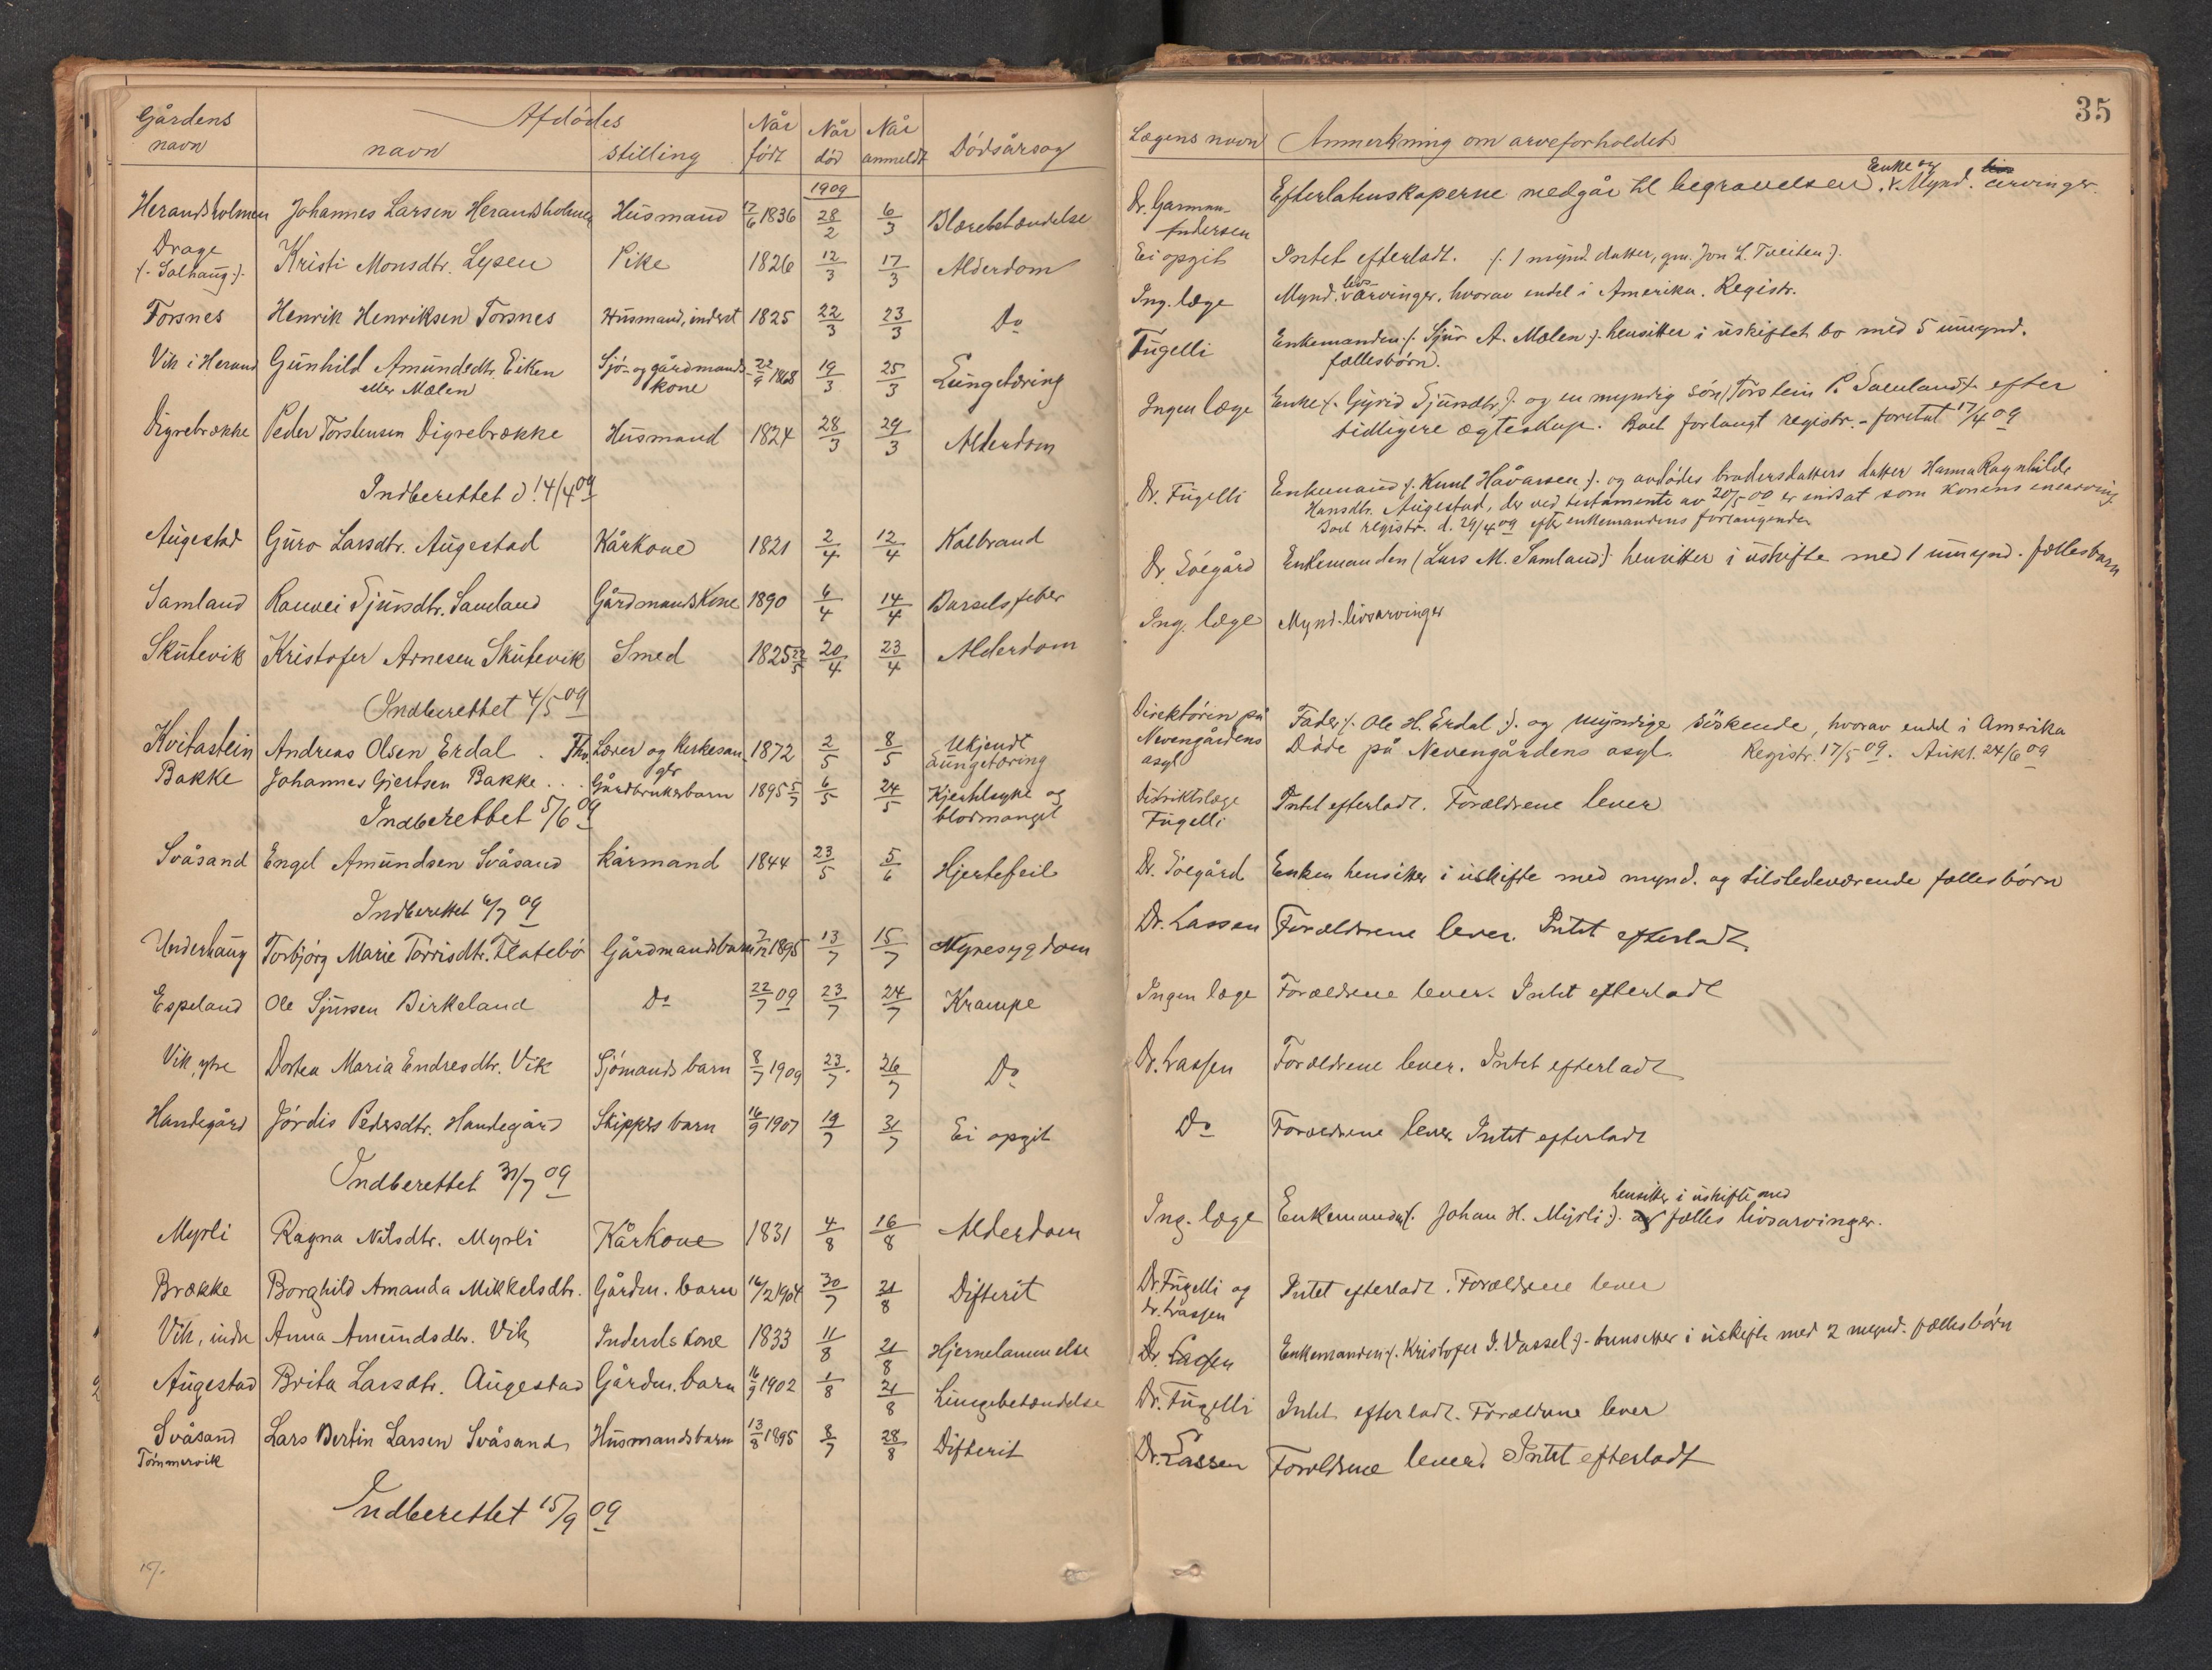 35
Gårdens navn | Afdødes navn | stilling | Når født | Når død | Når anmeldt | Dødsårsag | Lægens navn | Anmerkning om arveforholdet
1909
Herandsholmen | Johannes Larsen Herandsholmen | Husmand | 17/6 1836 | 28/2 | 6/3 | Blærebetændelse | Dr. Garman-Andersen | Efterlatenskaperne medgår til begravelsen. Enke og Mynd. arvinger.
Drage (Solhaug) | Kristi Monsdtr. Lysen | Pike | 1826 | 12/3 | 17/3 | Alderdom | Ei opgit | Intet efterladt. (1 mynd. datter, gm. Jon L. Tveiten).
Torsnes | Henrik Henriksen Torsnes | Husmand, inderst | 1825 | 22/3 | 23/3 | Do | Ing. læge | Mynd. livsarvinger, hvorav endel i Amerika. Registr.
Vik i Herand | Gunhild Amundsdtr. Eiken eller Mælen | Sjø- og gårdmands-kone | 22/9 1868 | 19/3 | 25/3 | Lungetæring | Fugelli | Enkemanden (Sjur A. Mælen) hensitter i uskiftet bo med 5 umynd. fællesbørn.
Digrebrække | Peder Torstensen Digrebrække | Husmand | 1824 | 28/3 | 29/3 | Alderdom | Ingen læge | Enke (Gyrid Sjursdtr.) og en myndig søn (Torstein P. Samland) efter tidligere ægteskap. Boet forlangt registr. - foretat 17/4 09
Indberettet d. 14/4 09
Augestad | Guro Larsdtr. Augestad | Kårkone | 1821 | 2/4 | 12/4 | Kolbrand | Dr. Fugelli | Enkemand (Knut Håvarsen) og avdødes brodersdatters datter Hanna Ragnhilde Hansdtr. Augestad, der ved testamente av 20/5 00 er indsat som konens enearving. Boet registr. d. 29/4 09 efter enkemandens forlangende
Samland | Ranvei Sjursdtr. Samland | Gårdmandskone | 1890 | 6/4 | 14/4 | Barselsfeber | Dr. Soegård | Enkemanden (Lars M. Samland) hensitter i uskifte med 1 umynd. fællesbarn
Skutevik | Kristofer Arnesen Skutevik | Smed | 1825 22/5 | 20/4 | 23/4 | Alderdom | Ing. læge | Mynd. livsarvinger
Indberettet 4/5 09
Kvitastein | Andreas Olsen Erdal | Fhv. Lærer og kirkesanger | 1872 | 2/5 | 8/5 | Ukjendt Lungetæring | Direktøren på Nevengårdens asyl | Fader (Ole H. Erdal) og myndige søskende, hvorav endel i Amerika Døde på Nevengårdens asyl. Registr. 17/5 09. Aukt. 24/6 09
Bakke | Johannes Gjertsen Bakke | Gårdbrukerbarn | 1895 5/7 | 6/5 | 24/5 | Kjertelsyke og blodmangel | Distriktslæge Fugelli | Intet efterladt. Forældrene lever
Indberettet 5/6 09
Svåsand | Engel Amundsen Svåsand | Kårmand | 1844 | 23/5 | 5/6 | Hjertefeil | Dr. Soegård | Enken hensitter i uskifte med mynd. og tilstedeværende fællesbørn
Indberettet 6/7 09
Underhaug | Torbjørg Marie Torrisdtr. Flatebø | Gårdmandsbarn | 7/12 1895 | 13/7 | 15/7 | Nyresygdom | Dr. Lassen | Forældrene lever. Intet efterladt.
Espeland | Ole Sjursen Birkeland | Do | 22/7 09 | 23/7 | 24/7 | Krampe | Ingen læge | Forældrene lever. Intet efterladt
Vik, ytre | Dortea Maria Endresdtr. Vik | Sjømandsbarn | 8/7 1909 | 23/7 | 26/7 | Do | Dr. Lassen | Forældrene lever. Intet efterladt
Handegård | Jørdis Pedersdtr. Handegård | Skippers barn | 16/9 1907 | 19/7 | 31/7 | Ei opgit | Do | Forældrene lever. Intet efterladt
Indberettet 31/7 09
Myrli | Ragna Nilsdtr. Myrli | Kårkone | 1831 | 4/8 | 16/8 | Alderdom | Ing. læge | Enkemanden (Johan H. Myrli) hensitter i uskifte med fælles livsarvinger.
Brække | Borghild Amanda Mikkelsdtr. | Gårdm. barn | 16/2 1904 | 30/7 | 21/8 | Difterit | Dr. Fugelli og dr. Lassen | Intet efterladt. Forældrene lever
Vik, indre | Anna Amundsdtr. Vik | Inderstskone | 1833 | 11/8 | 21/8 | Hjernelammelse | Dr. Lassen | Enkemanden (Kristofer I. Vassel) hensitter i uskifte med 2 mynd. fællesbørn
Augestad | Brita Larsdtr. Augestad | Gårdm. barn | 16/9 1902 | 1/8 | 21/8 | Lungebetændelse | Dr. Fugelli | Intet efterladt. Forældrene lever
Svåsand Tømmervik | Lars Bertin Larsen Svåsand | Husmandsbarn | 13/8 1895 | 8/7 | 28/8 | Difterit | Dr. Lassen | Forældrene lever. Intet efterladt
Indberettet 15/9 09